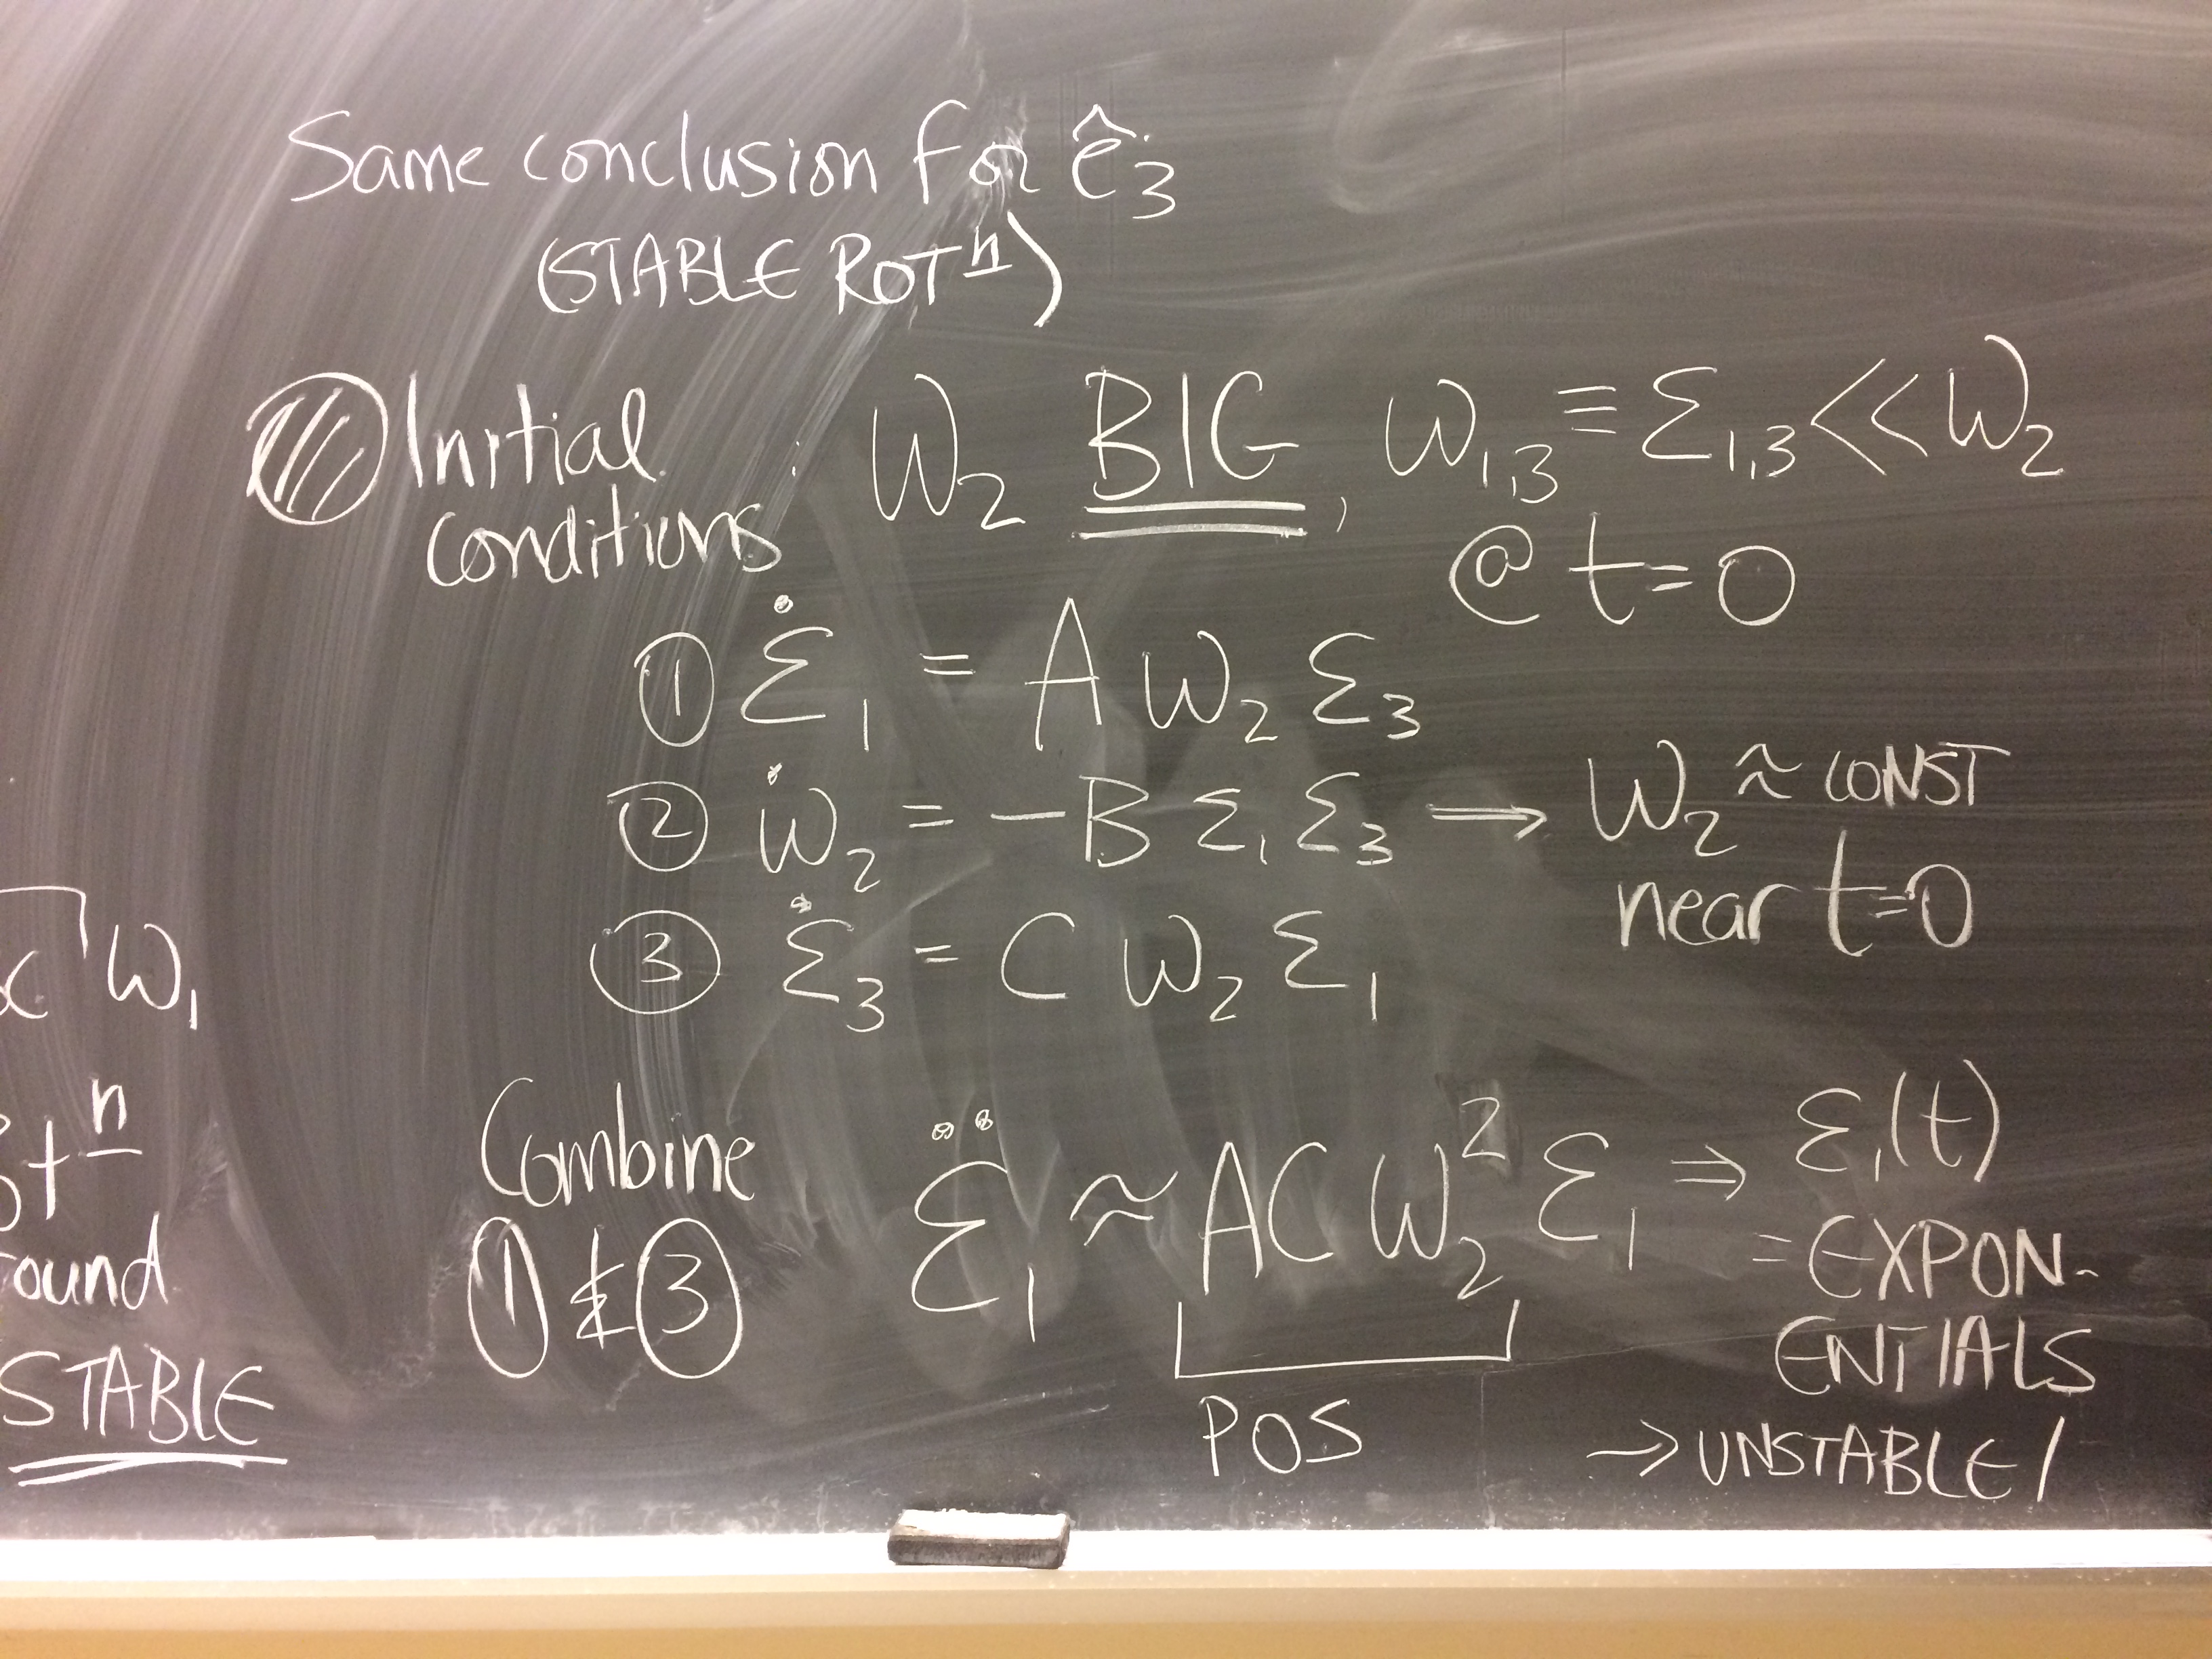 Same conclusion for ê₃
(STABLE ROTⁿ)
Initial conditions : ω₂ BIG, ω₁,₃ ≡ ε₁,₃ << ω₂
@ t=0
① ε̇₁ = A ω₂ ε₃
② ω̇₂ = -B ε₁ ε₃ → ω₂ ≈ CONST
near t=0
③ ε̇₃ = C ω₂ ε₁
Combine
① & ③
ε̈₁ ≈ AC ω₂² ε₁ ⇒ ε₁(t)
= EXPON-
ENTIALS
POS
→ UNSTABLE!
ω₁
STABLE